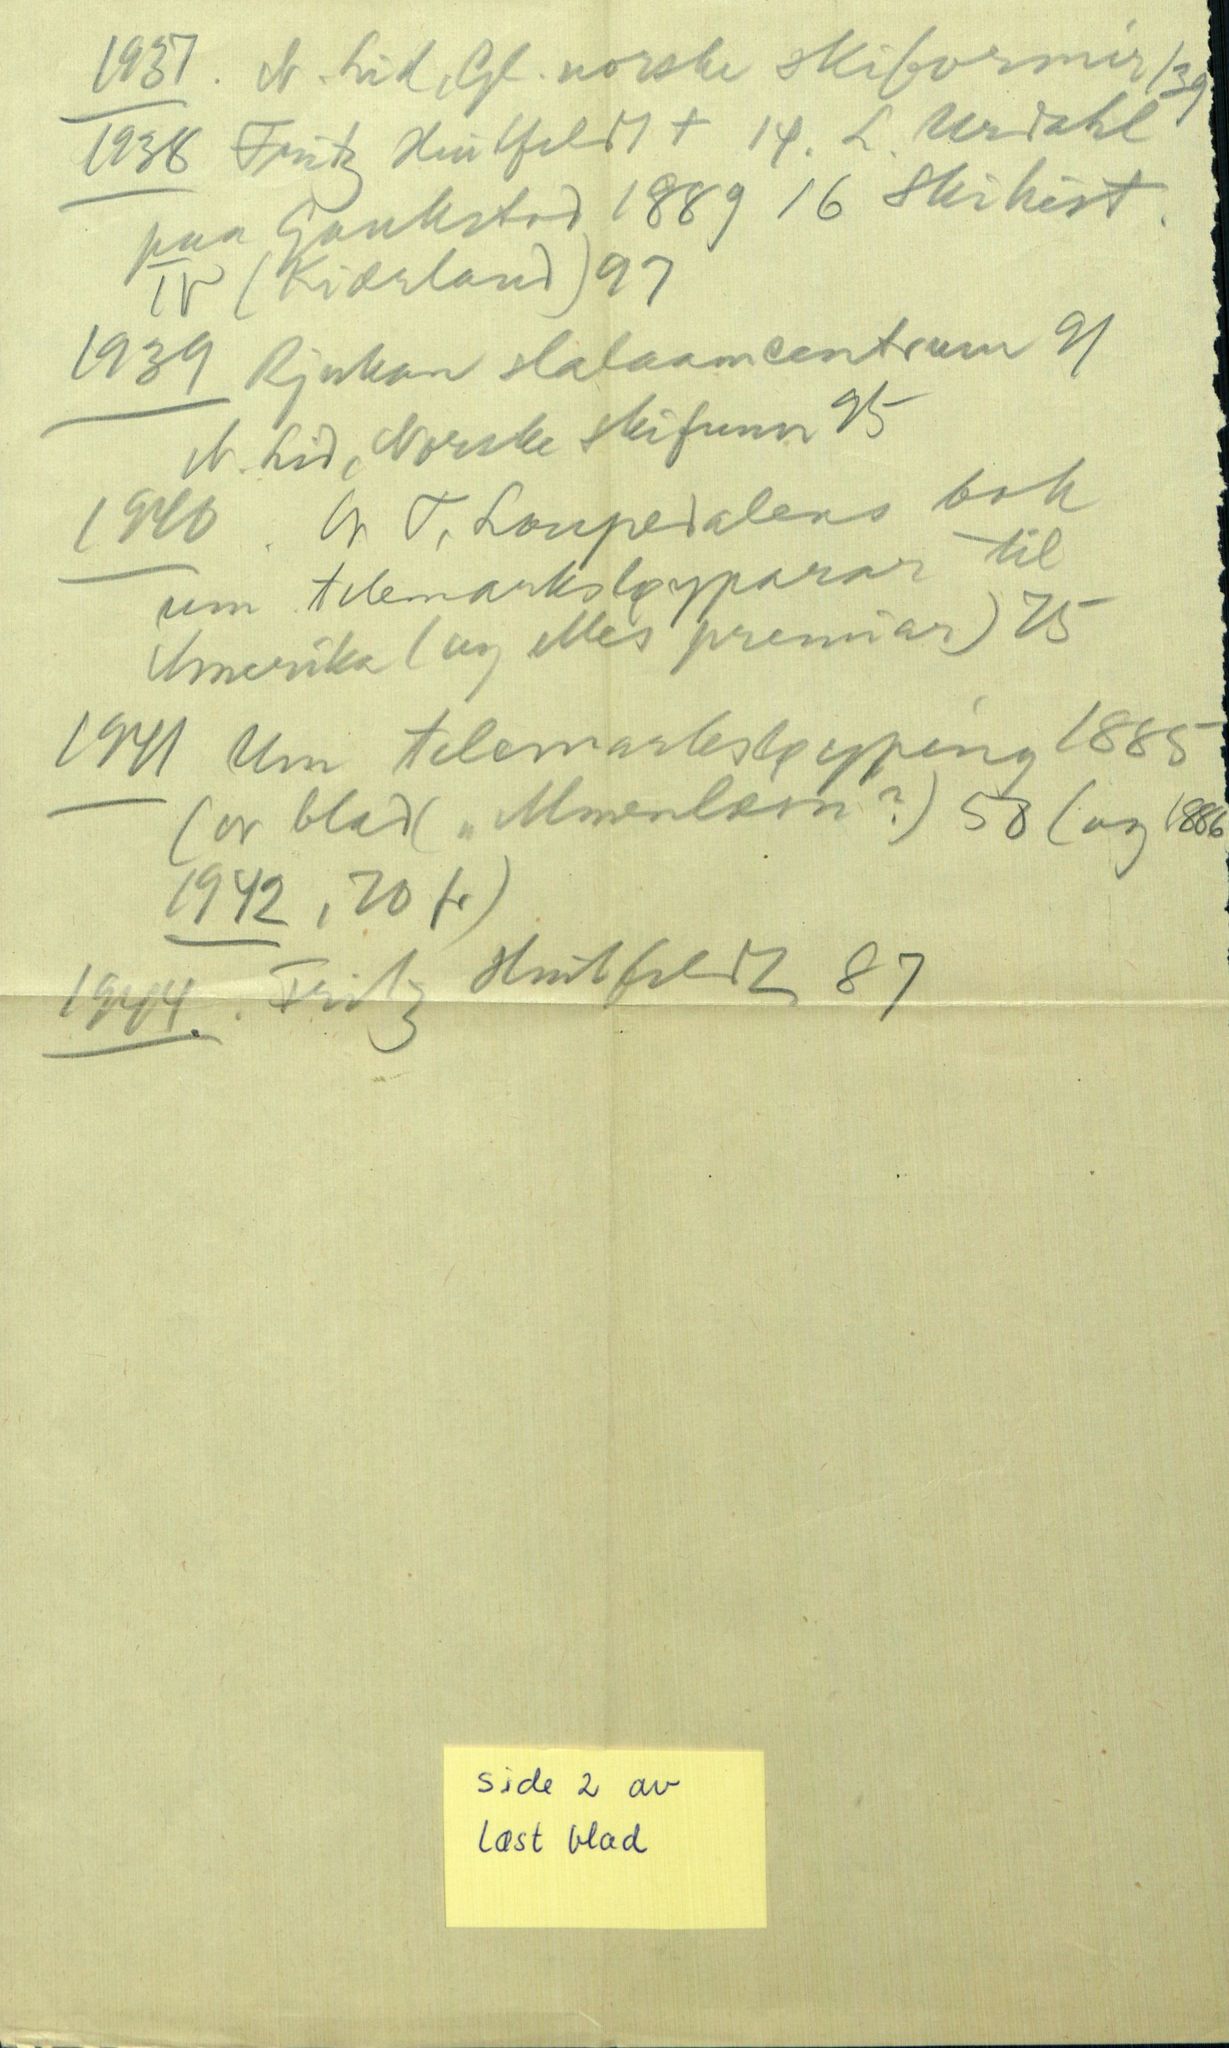 1937. N. Lid, Gl. norske skiformir 139
1938 Fritz Huitfeldt + 14. L. Urdahl
paa Gaukstad 1889 16 Skihist.
IV (Kiærland) 97
1939 Rjukan slalaamcentrum 91
N. Lid, Norske skifunn 95
1940. Or T. Loupedalens bok
um telemarksløyparar til
Amerika (og premiar) 75
1941 Um telemarksløyping 1885
(or blad ( 58 (og 1886
1942, 70 fr)
1944. Fritz Huitfeldt, 87
side 2 av
løst blad